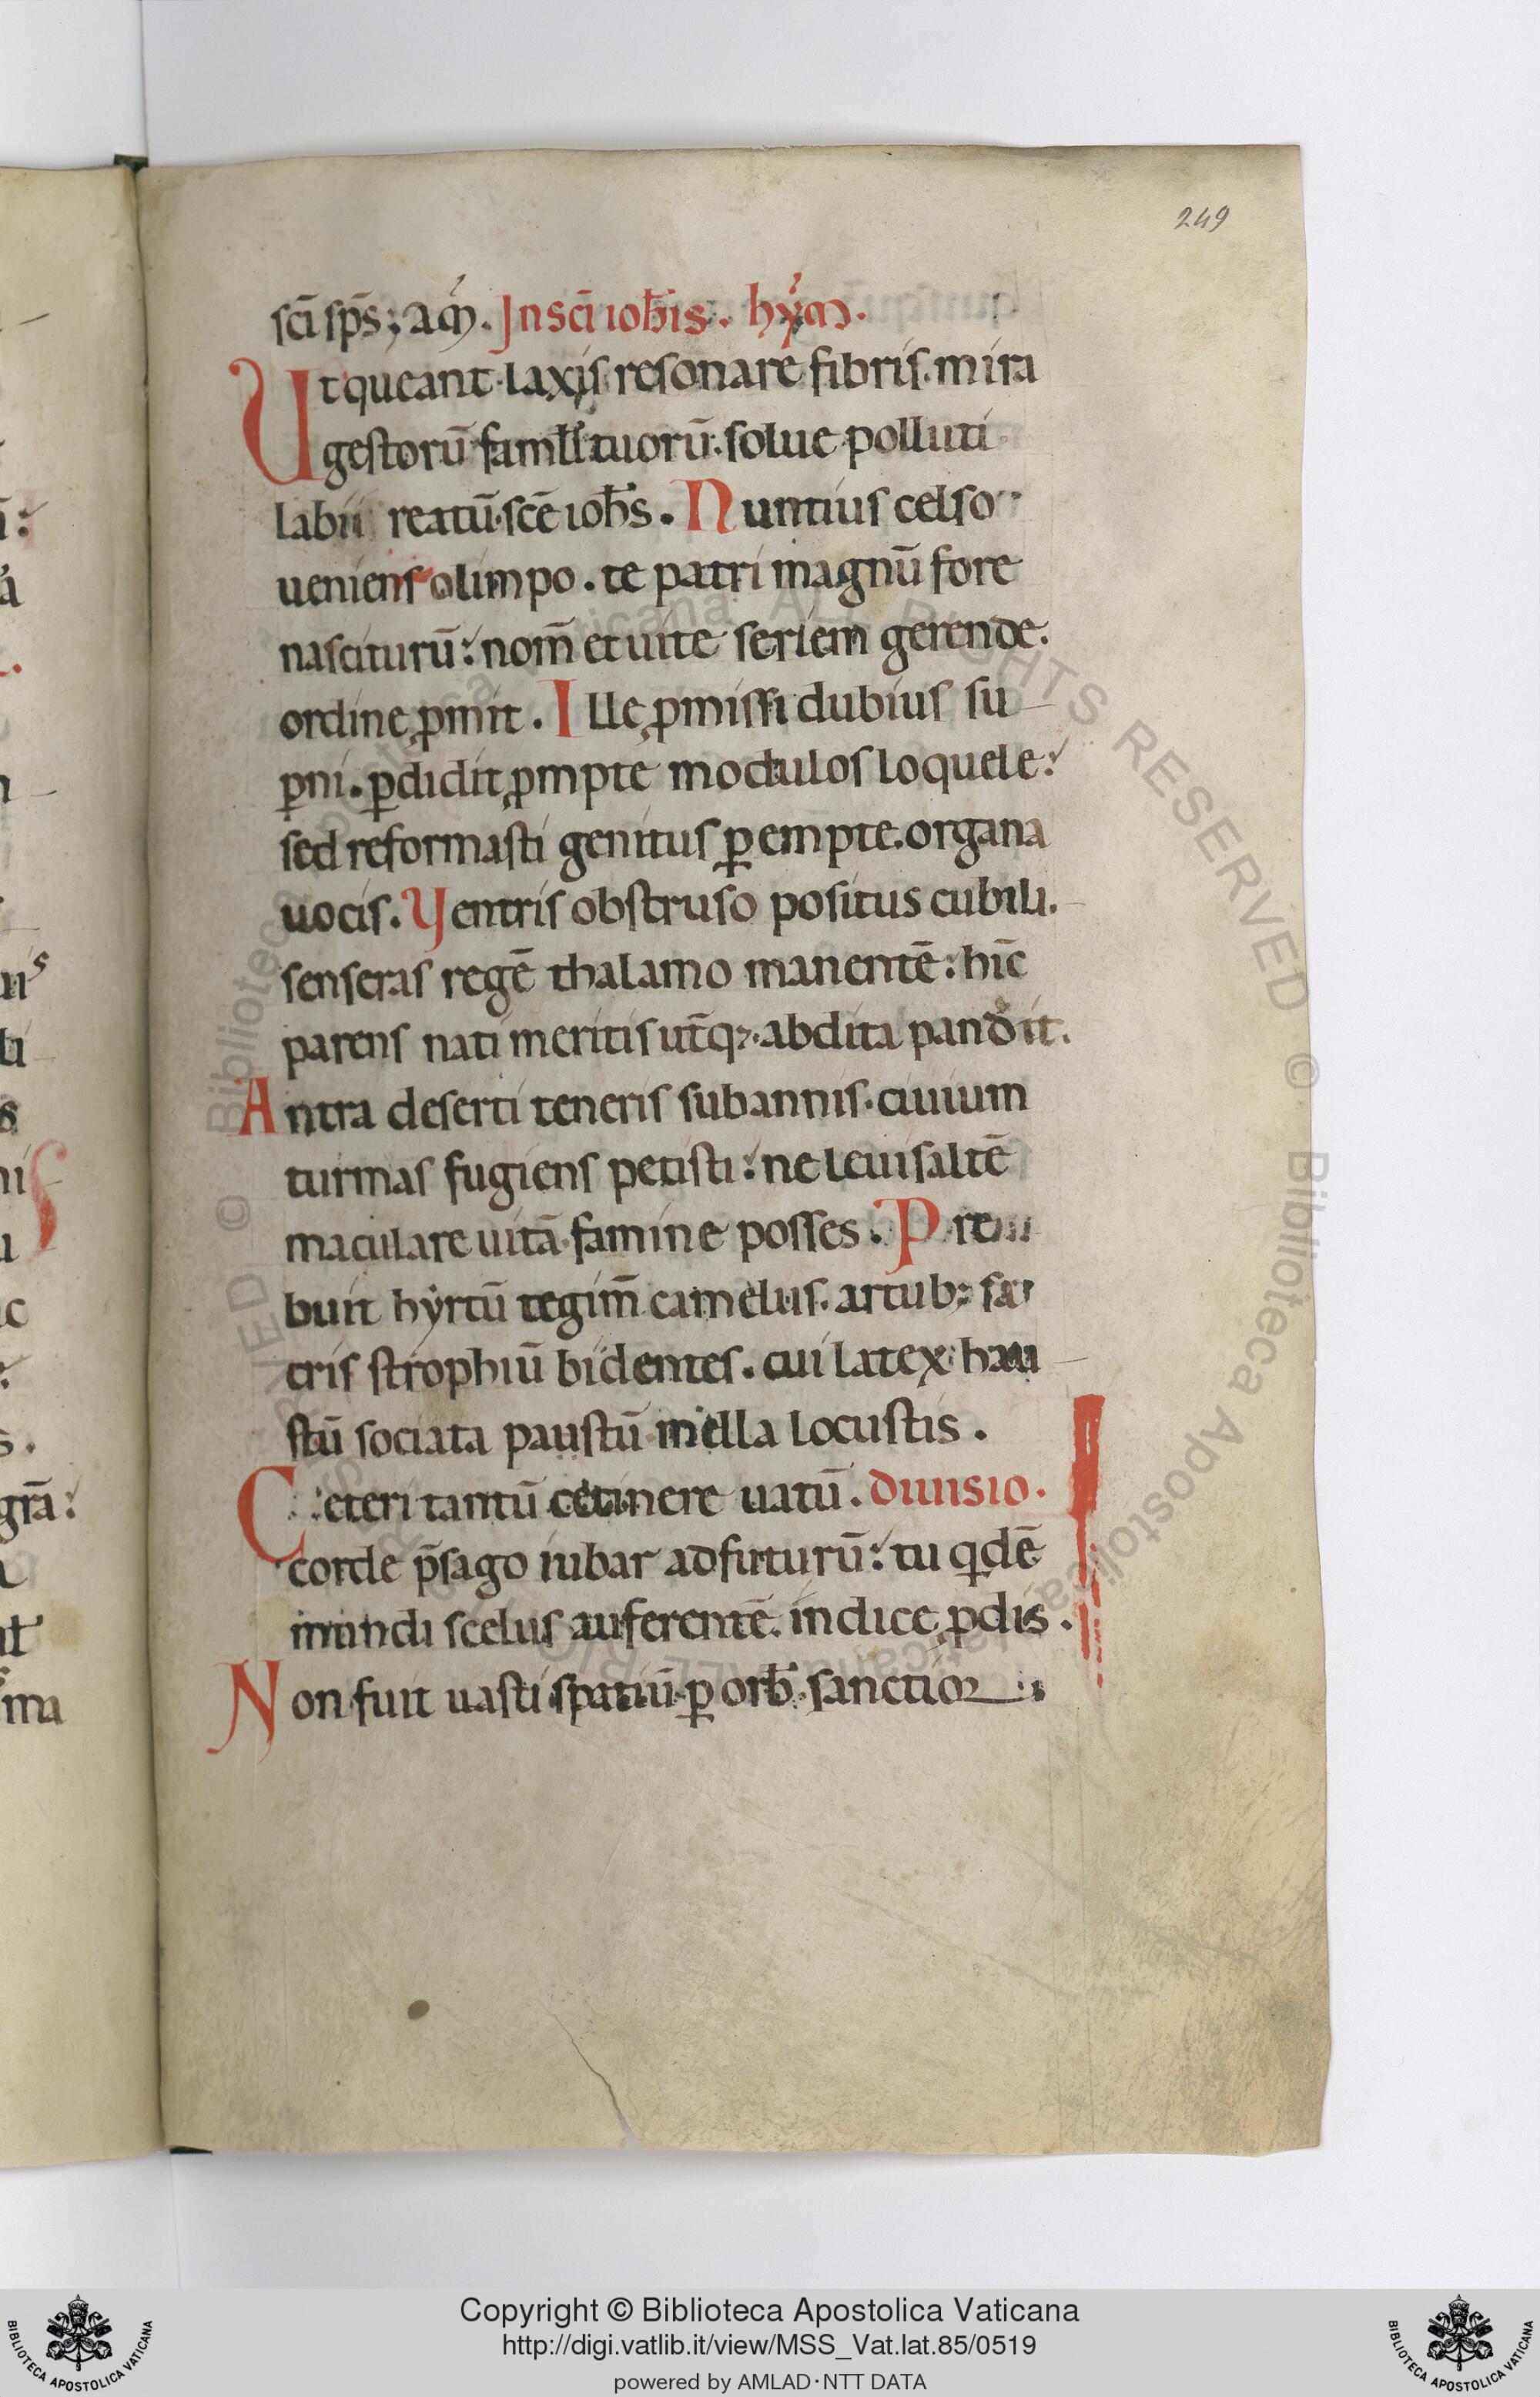 249
sc̄i sp̄s; am̄. In sc̄i ioh̄is. hẏm̄.
Ut queant laxis resonare fibris. mira
gestorū famłi tuorū. solue polluti
labii reatū. sc̄e ioh̄s. Nuntius celso
ueniens olimpo. te patri magnū fore
nasciturū: nom̄ et uite seriem gerende.
ordine ꝓmit. Ille ꝓmissi dubius su
ꝑni. ꝑdidit ꝓmpte modulos loquele:
sed reformasti genitus ꝑempte. organa
uocis. Ventris obstruso positus cubili.
senseras regē thalamo manentē: hīc
parens nati meritis ut̄q;. abdita pandit.
Antra deserti teneris sub annis. ciuium
turmas fugiens petisti: ne leui saltē
maculare uitā. famine posses. Pre
buit hẏrtū tegim̄ camelus. artub; sa
cris strophiū bidentes. cui latex hau
stū sociata paustū mella locustis.
Ceteri tantū cecinere uatū. diuisio.
corde p̄sago iubar adfuturū: tu qͥdē
mundi scelus auferentē. indice ꝓdis.
Non fuit uasti spatiū. ꝑ orb̄. sanctior
Copyright © Biblioteca Apostolica Vaticana
http://digi.vatlib.it/view/MSS_Vat.lat.85/0519
powered by AMLAD·NTT DATA